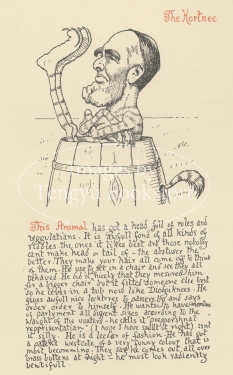 The Hortnee
This Animal has got a head foll of rules and
regoulations. It is awfull fond of all kinds of
riddles the ones it likes best are those noboddy
cant make head or tail of – the absturer the
better. They make your hair all come off to think
of them. He use to set in a chair and see they all
behaved. He did it nicely that they mesured him
for a bigger chair but it fitted someone else best
so he lives in a tub now like Diodginnees. He
gives awfull nice lecktures to and says
order order to himself. He wanted to have
of parlyment all diferent sizes according to the
waight of the voates – he calls it preoportional
repprisentation (I hope I have spelt it right) isnt
it silly. He is a leeder of fashion. He has got
a westcote of a very funny colour that is
most becomming. They say he comes out all over
brass buttens at night – he must look radiently
beutifull